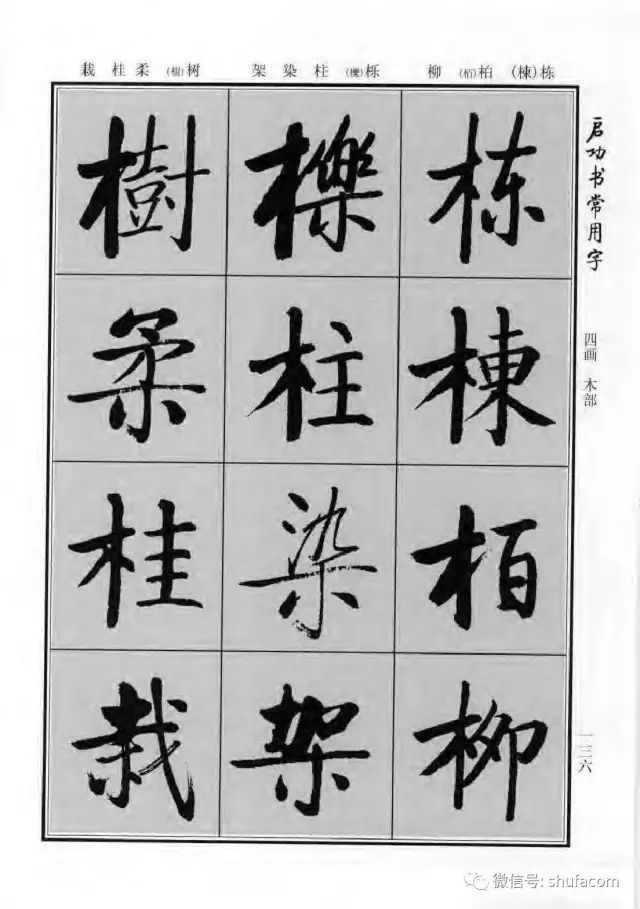 启功书常用字
四画 木部
一三六
栋(棟) 柏(栢) 柳
栎(櫟) 柱 染 架
树(樹) 柔 桂 栽
栋
棟
栢
柳
櫟
柱
染
架
樹
柔
桂
栽
微信号: shufacom